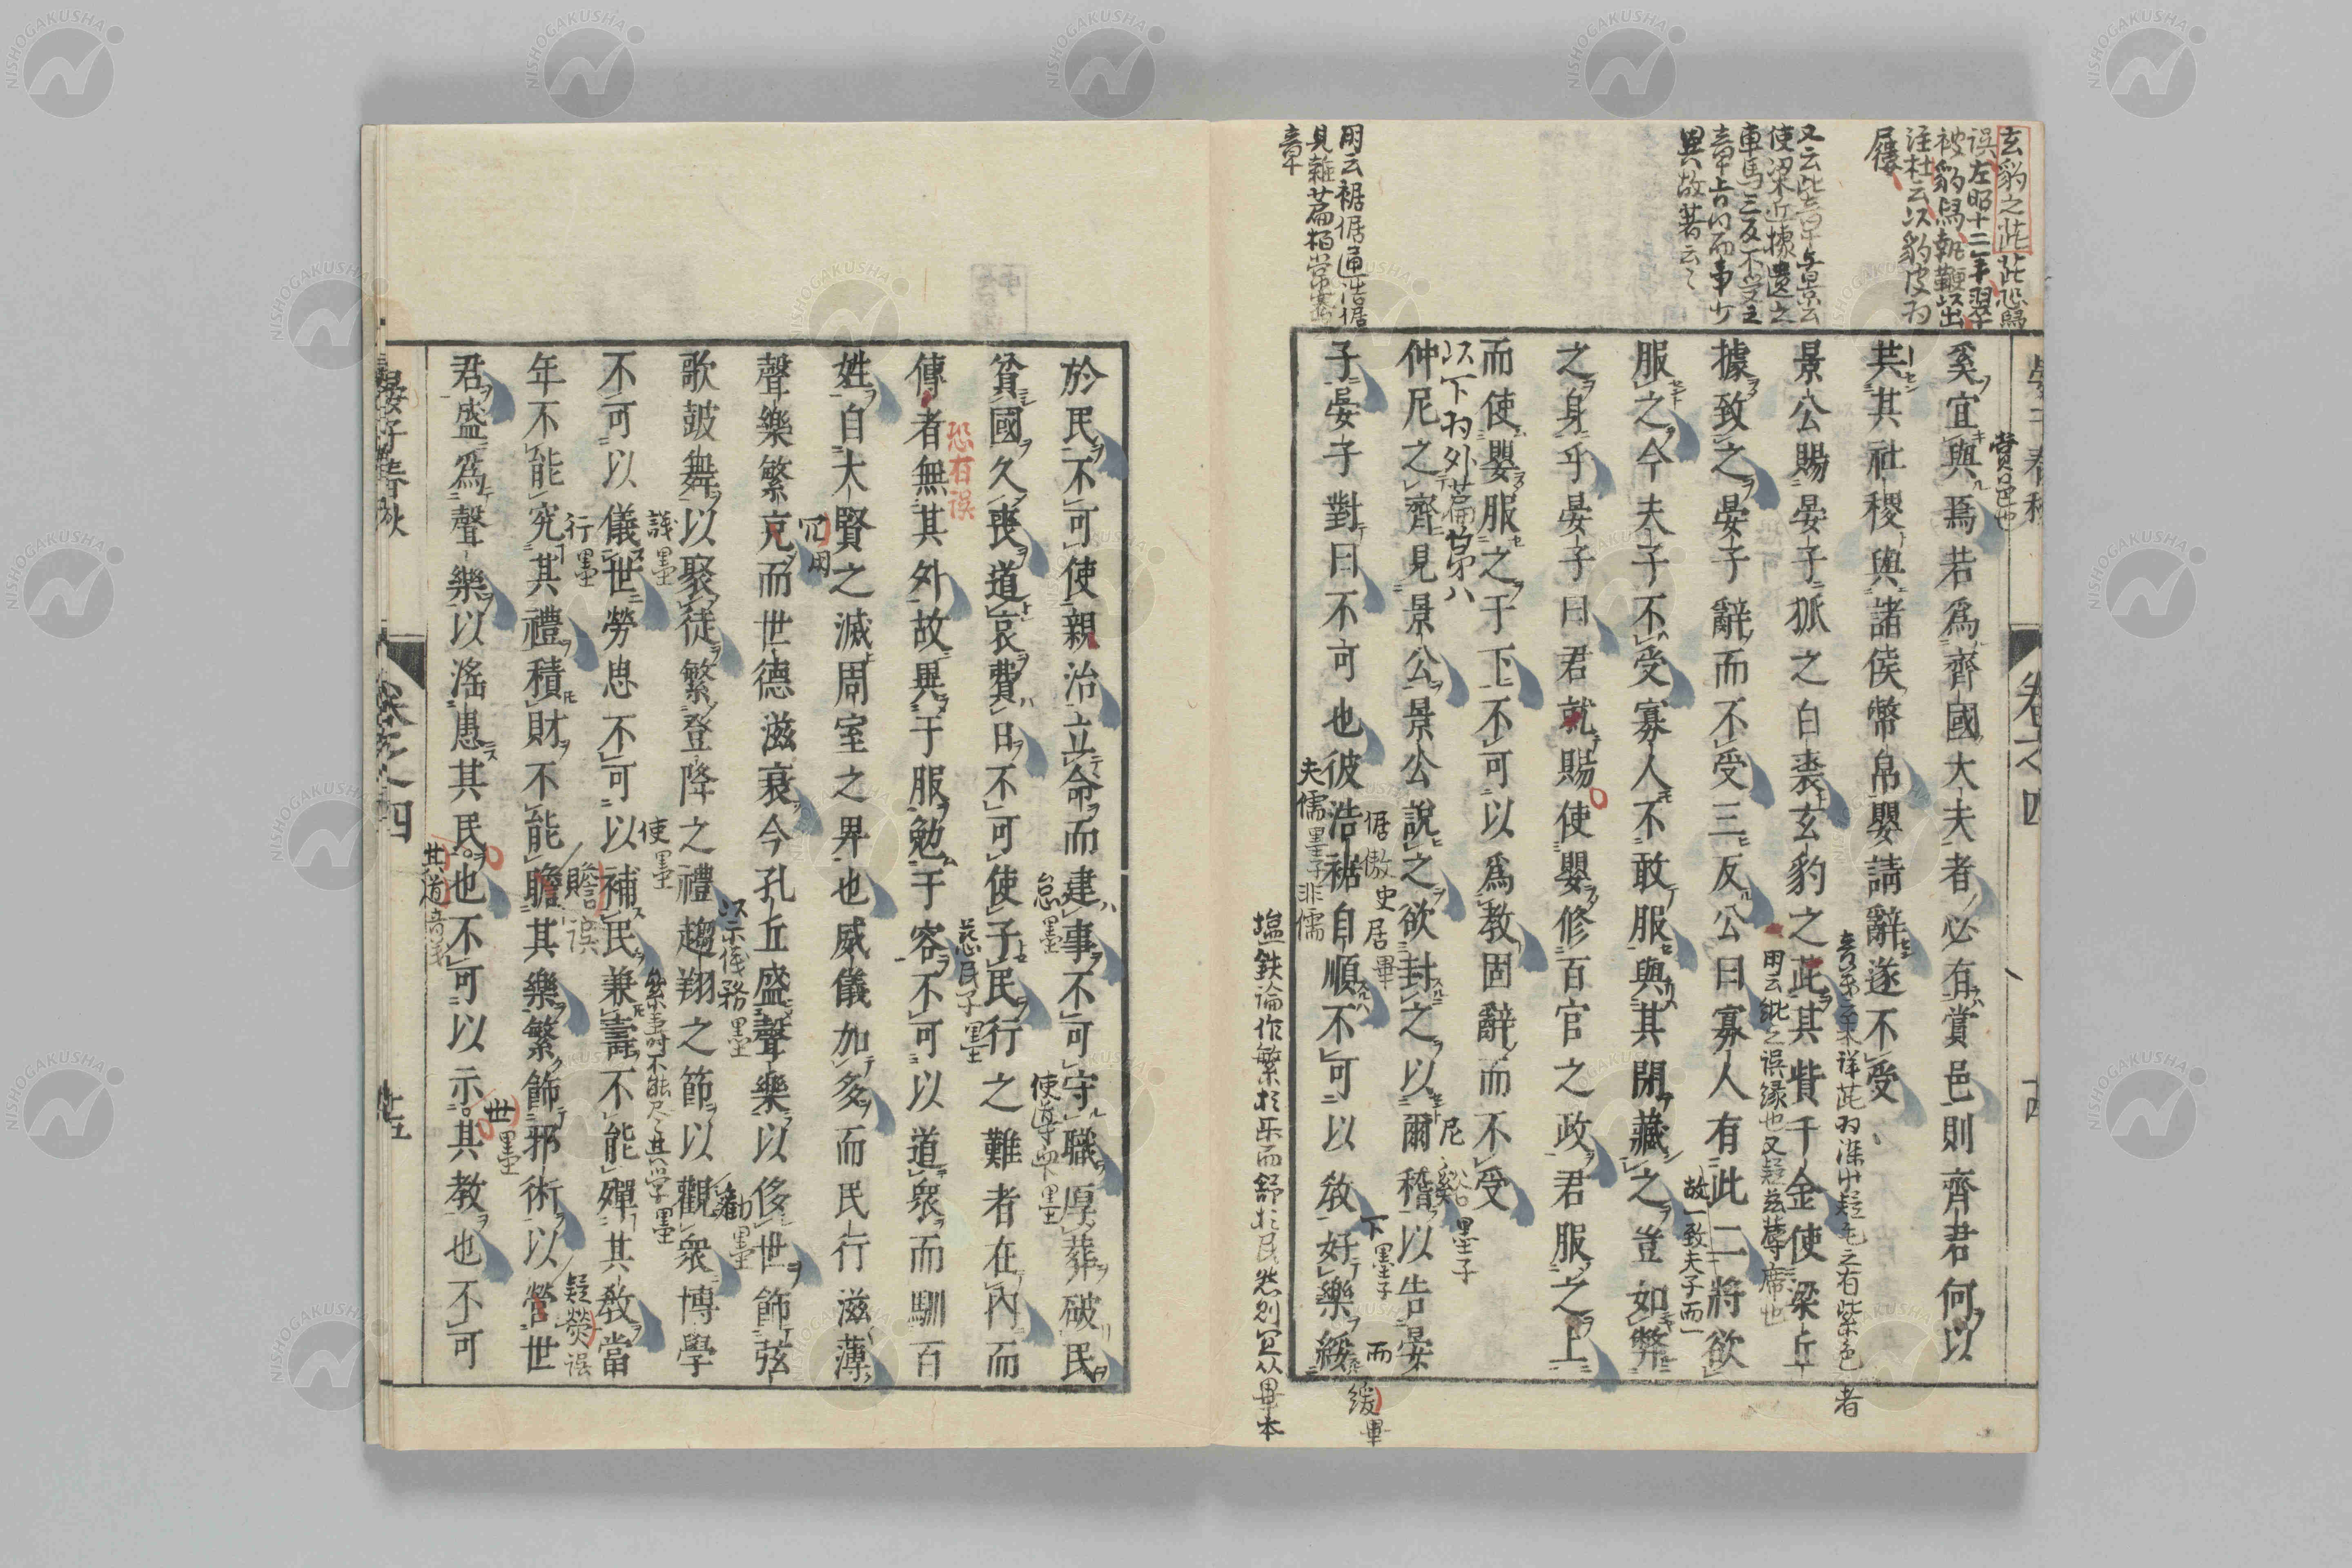 奚宜與焉若爲齊國大夫者必有賞邑則齊君何以
共其社稷與諸侯幣帛嬰請辭遂不受
景公賜晏子狐之白裘玄豹之茈其貲千金使梁丘
據致之晏子辭而不受三反公曰寡人有此二將欲
服之今夫子不受寡人不敢服與其閉藏之豈如弊
之身乎晏子曰君就賜使嬰修百官之政君服之上
而使嬰服之于下不可以爲教固辭而不受
仲尼之齊見景公景公說之欲封之以爾稽以告晏
子晏子對曰不可也彼浩裾自順不可以敎好樂綏
於民不可使親治立命而建事不可守職厚葬破民
貧國久喪道哀費日不可使子民行之難者在內而
傳者無其外故異于服勉于容不可以道衆而馴百
姓自大賢之滅周室之畀也威儀加多而民行滋薄
聲樂繁充而世德滋衰今孔丘盛聲樂以侈世飾弦
歌皷舞以聚徒繁登降之禮趨翔之節以觀衆博學
不可以儀世勞思不可以補民兼壽不能殫其敎當
年不能究其禮積財不能贍其樂繁飾邪術以營世
君盛爲聲樂以滛愚其民也不可以示其教也不可
晏子春秋
卷之四
十五
玄豹之茈茈恐舃
誤左昭十二年翠
被豹舃執鞭以出
注杜云以豹皮为
屨
又云此章与景公
使梁丘據遺之
車馬三反不受之
章旨同而事少
異故著云々
用云裾倨通浩倨
見雜篇栢常騫
章
費邑也
以下为外篇第八
倨傲史居畢
夫儒墨子非儒
尼谿墨子
下墨子
而
緩畢
塩鉄論作繁於乐而舒於民然则宜从畢本
恐有误
怠墨
慈民子墨
使導卑下墨
冗用
議墨
行墨
使墨
以示儀務墨
勸墨
贍誤
世墨
疑熒误